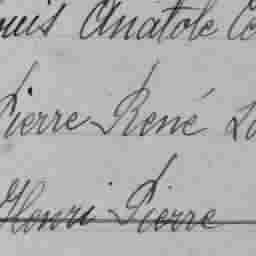 ouis Anatole Ce
Pierre René L
Henri Pierre